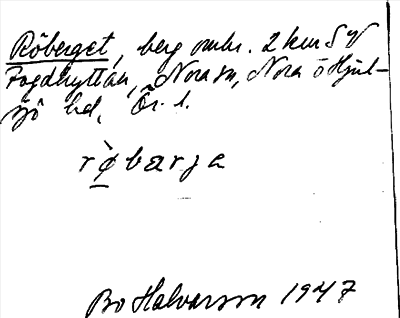 Röberget, berg omkr. 2 km S of
Fogdhyttan, Nora sn, Nora o Hjul-
sjö hd, Ör. l.
rø̀barja
Bo Halvarson 1947